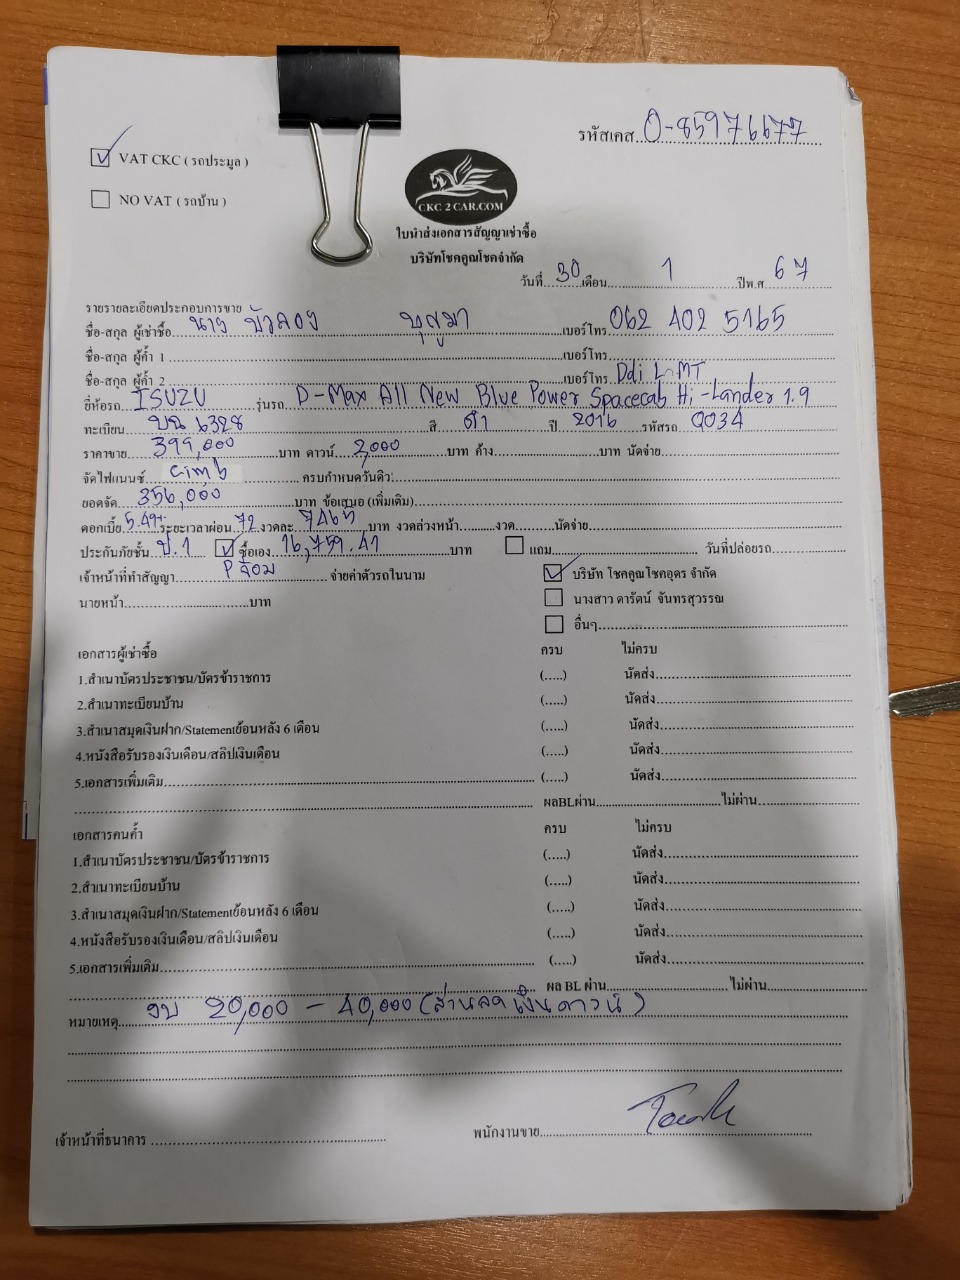 รหัสเคส....0-85976677
VAT CKC ( รถประมูล )
NO VAT ( รถบ้าน )
CKC 2 CAR.COM
ใบนำส่งเอกสารสัญญาเช่าซื้อ
บริษัทโชคคูณโชคจำกัด
วันที่ 30 เดือน 1 ปีพ.ศ 67
รายรายละเอียดประกอบการขาย
ชื่อ-สกุล ผู้เช่าซื้อ นาง บัวลอง บุญมา เบอร์โทร 062 402 5165
ชื่อ-สกุล ผู้ค้ำ 1 เบอร์โทร
ชื่อ-สกุล ผู้ค้ำ 2 เบอร์โทร Ddi L MT
ยี่ห้อรถ ISUZU รุ่นรถ D-Max All New Blue Power Spacecab Hi-Lander 1.9
ทะเบียน บฉ 6328 สี ดำ ปี 2016 รหัสรถ Q034
ราคาขาย 399,000 บาท ดาวน์ 2,000 บาท ค้าง บาท นัดจ่าย
จัดไฟแนนซ์ cimb ครบกำหนดวันดิว
ยอดจัด 356,000 บาท ข้อเสนอ (เพิ่มเติม)
ดอกเบี้ย 5.49% ระยะเวลาผ่อน 72 งวดละ 7465 บาท งวดล่วงหน้า งวด นัดจ่าย
ประกันภัยชั้น ป.1 ซื้อเอง 16,759.41 บาท แถม วันที่ปล่อยรถ
เจ้าหน้าที่ทำสัญญา P จ๋อม จ่ายค่าตัวรถในนาม บริษัท โชคคูณโชคอุดร จำกัด
นายหน้า บาท นางสาว ดารัตน์ จันทรสุวรรณ
อื่นๆ
เอกสารผู้เช่าซื้อ ครบ ไม่ครบ
1.สำเนาบัตรประชาชน/บัตรข้าราชการ (.....) นัดส่ง
2.สำเนาทะเบียนบ้าน (.....) นัดส่ง
3.สำเนาสมุดเงินฝาก/Statementย้อนหลัง 6 เดือน (.....) นัดส่ง
4.หนังสือรับรองเงินเดือน/สลิปเงินเดือน (.....) นัดส่ง
5.เอกสารเพิ่มเติม (.....) นัดส่ง
ผลBLผ่าน ไม่ผ่าน
เอกสารคนค้ำ ครบ ไม่ครบ
1.สำเนาบัตรประชาชน/บัตรข้าราชการ (.....) นัดส่ง
2.สำเนาทะเบียนบ้าน (.....) นัดส่ง
3.สำเนาสมุดเงินฝาก/Statementย้อนหลัง 6 เดือน (.....) นัดส่ง
4.หนังสือรับรองเงินเดือน/สลิปเงินเดือน (.....) นัดส่ง
5.เอกสารเพิ่มเติม (.....) นัดส่ง
ผล BL ผ่าน ไม่ผ่าน
หมายเหตุ งบ 20,000 - 40,000 (ส่วนลดเงินดาวน์)
เจ้าหน้าที่ธนาคาร พนักงานขาย